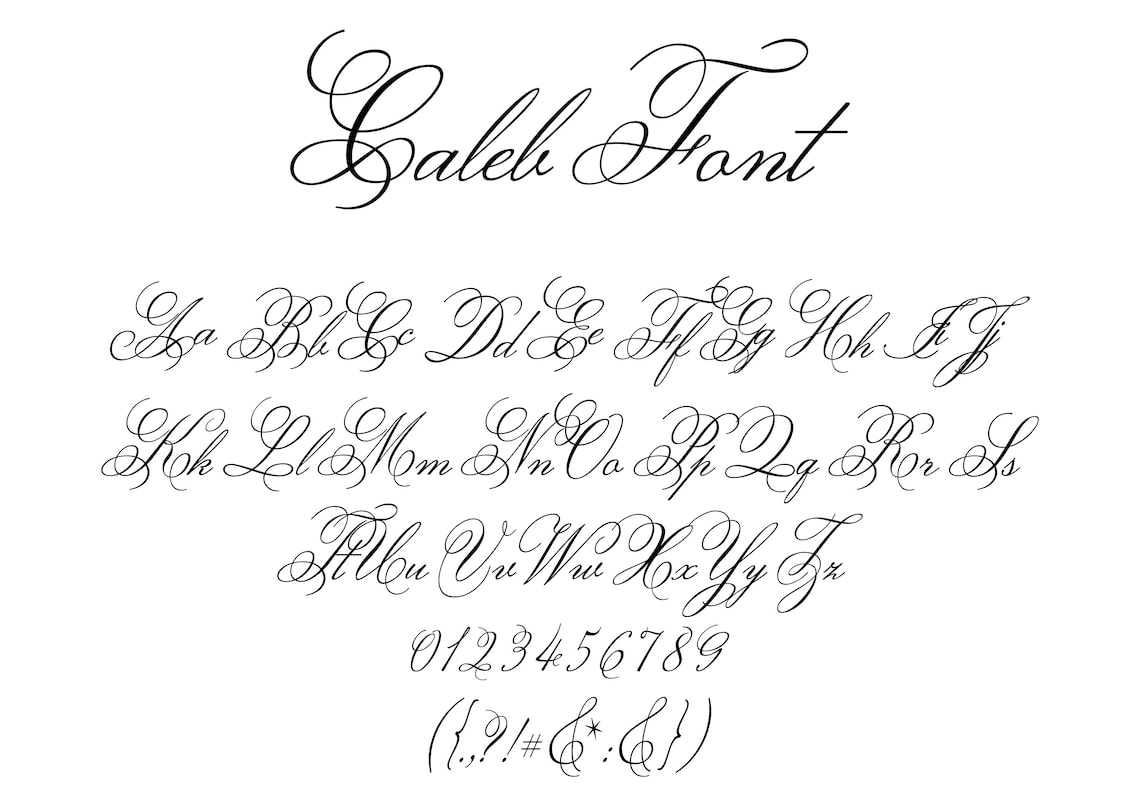 Caleb Font
Aa Bb Cc Dd Ee Ff Gg Hh Ii Jj
Kk Ll Mm Nn Oo Pp Qq Rr Ss
Tt Uu Vv Ww Xx Yy Zz
0123456789
({.,?!#&*:&})